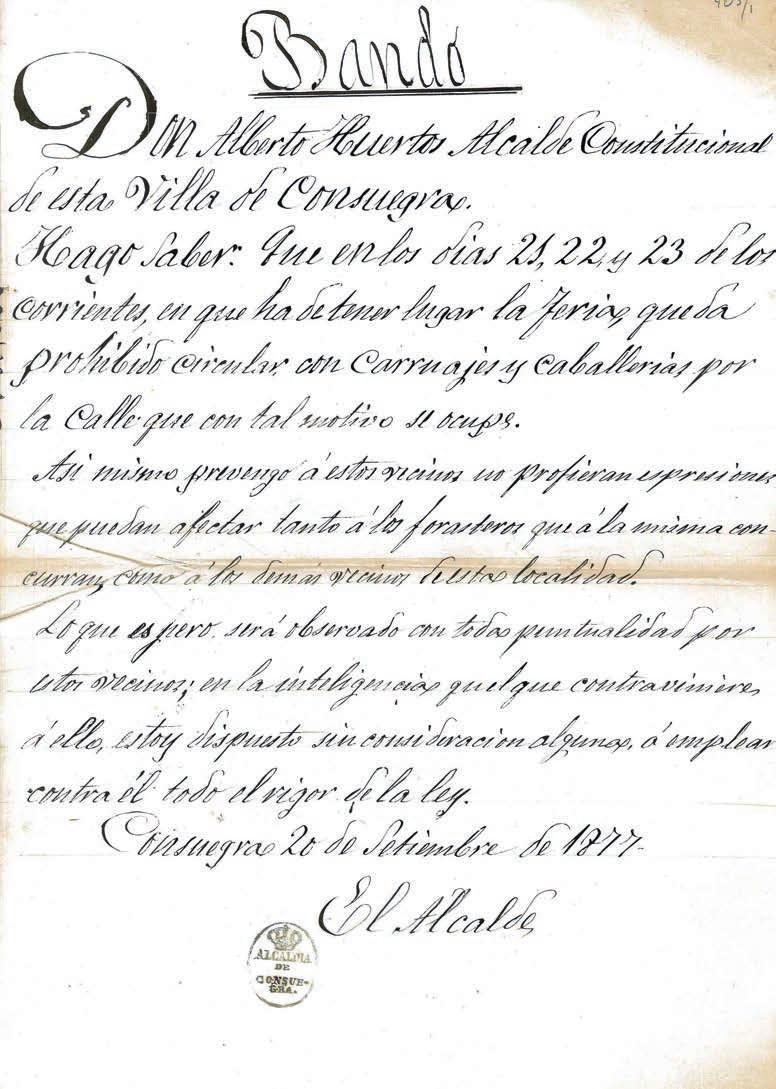 403/1
Bando
Don Alberto Huertos Alcalde Constitucional
de esta Villa de Consuegra.
Hago Saber: Que en los dias 21, 22, y 23 de los
corrientes, en que ha de tener lugar la Feria, queda
prohibido circular con carruajes y caballerias por
la calle que con tal motivo se ocupe.
Asi mismo prevengo á estos vecinos no profieran espresiones
que puedan afectar tanto á los forasteros que á la misma con-
curran, como á los demás vecinos de esta localidad.
Lo que espero será observado con toda puntualidad por
estos vecinos; en la inteligencia que el que contraviniere
á ello, estoy dispuesto sin consideracion alguna, á emplear
contra él todo el rigor de la ley.
Consuegra 20 de Setiembre de 1877-
El Alcalde
ALCALDIA
DE
CONSUE-
GRA.